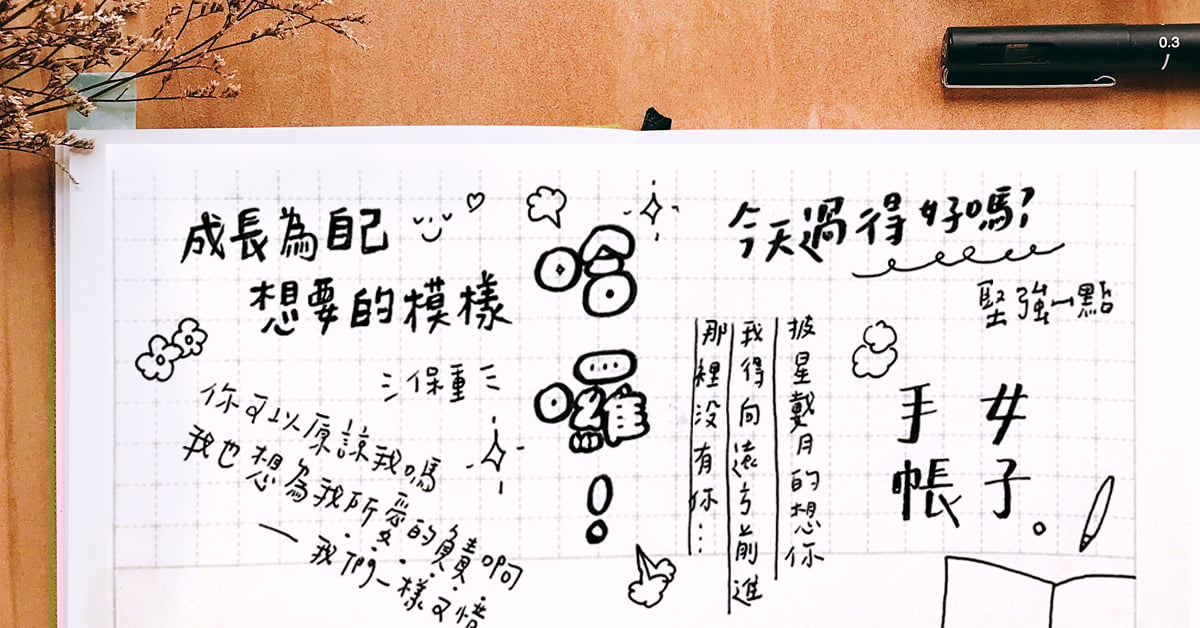 0.3
成長為自己
想要的模樣
保重
你可以原諒我嗎
我也想為我所愛的負責啊
一我們一樣可惜
哈囉!
今天過得好嗎?
堅強一點
披星戴月的想你
我得向遠方前進
那裡沒有你…
好好
手帳